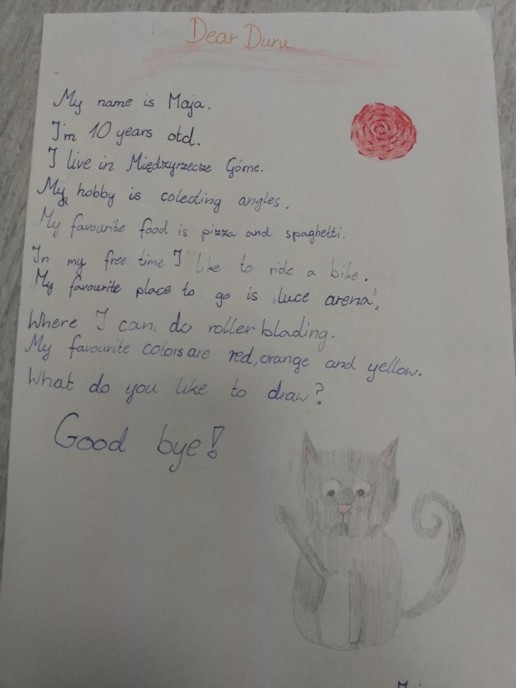 Dear Duru
My name is Maja.
I'm 10 years old.
I live in Międzyrzecze Górne.
My hobby is coleding angles.
My favourite food is pizza and spaghetti.
In my free time I like to ride a bike.
My favourite place to go is „luce arena",
Where I can do roller blading.
My favourite colors are red, orange and yellow.
What do you like to draw?
Good bye!